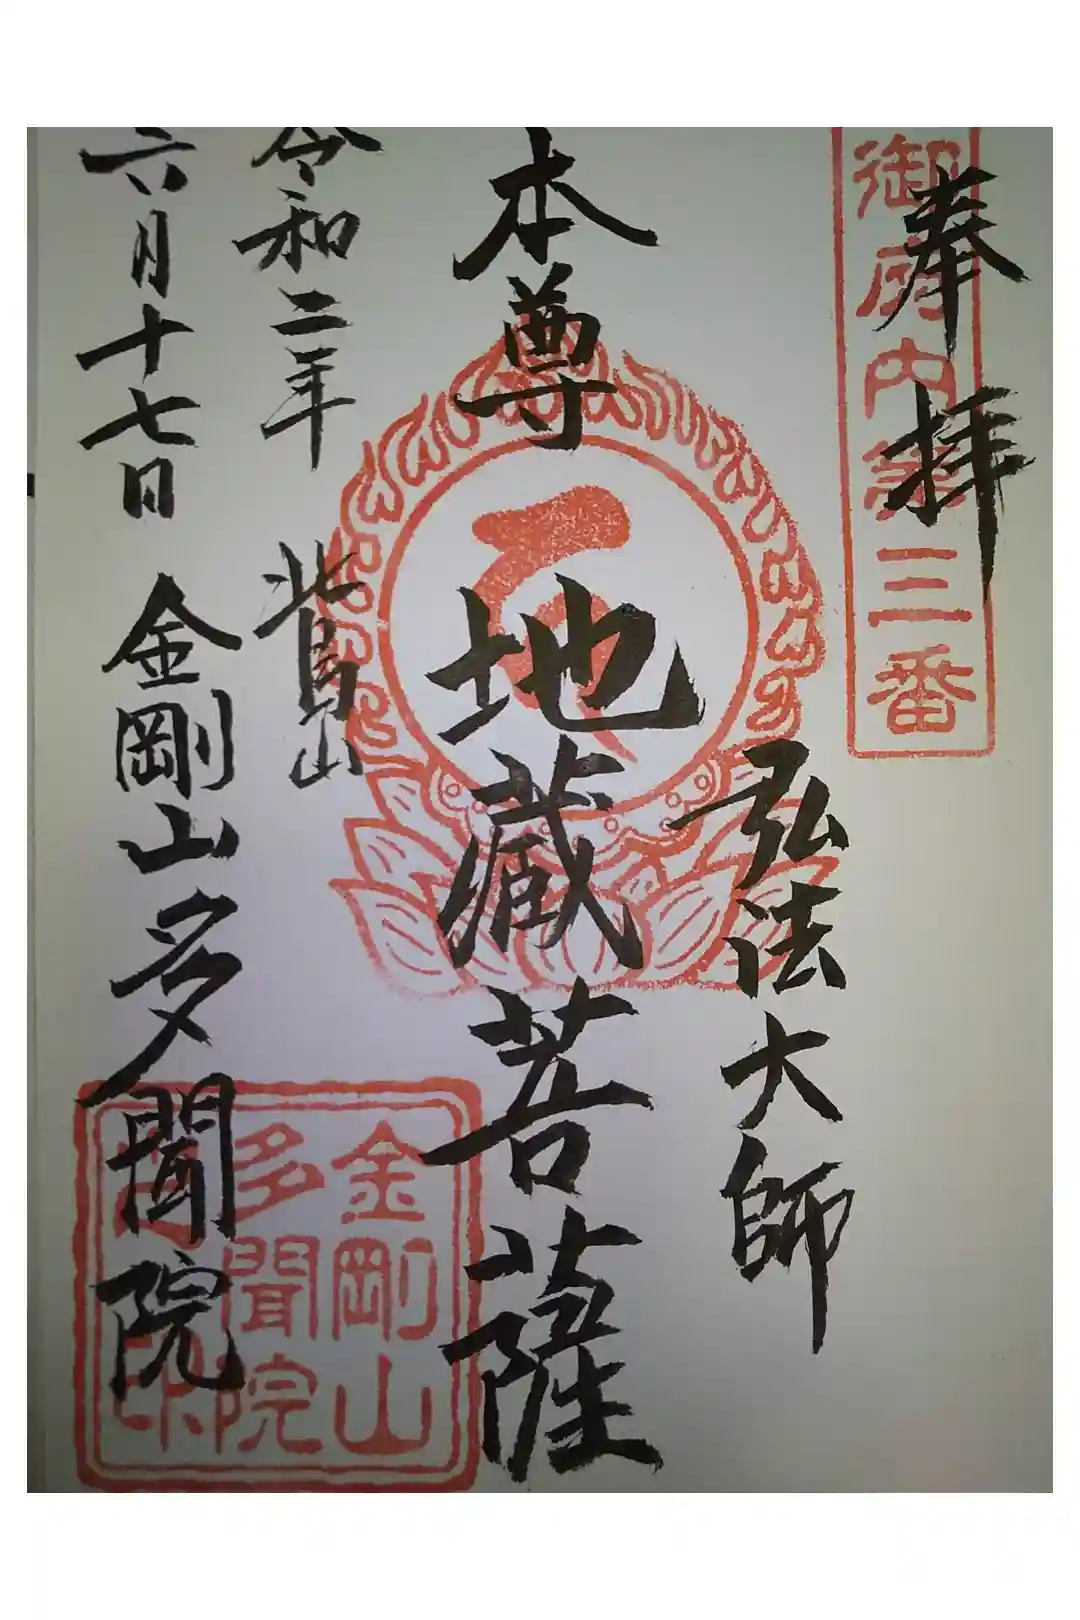 奉拝
御府内第三番
弘法大師
本尊
地蔵菩薩
令和二年
鷲山
六月十七日
金剛山多聞院
金剛山
多聞院
印